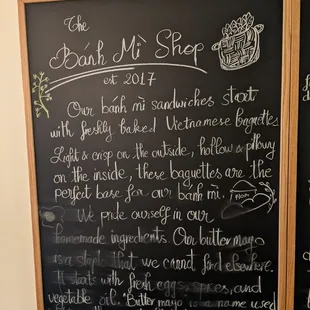 The
Bánh Mì Shop
est 2017
Our bánh mì sandwiches start
with freshly baked Vietnamese baguettes
Light & crisp on the outside, hollow & pillowy
on the inside, these baguettes are the
perfect base for our bánh mì.
We pride ourself in our
homemade ingredients. Our butter mayo
is a staple that we cannot find elsewhere.
It starts with fresh eggs, spices, and
vegetable oil. "Butter mayo" is a name used